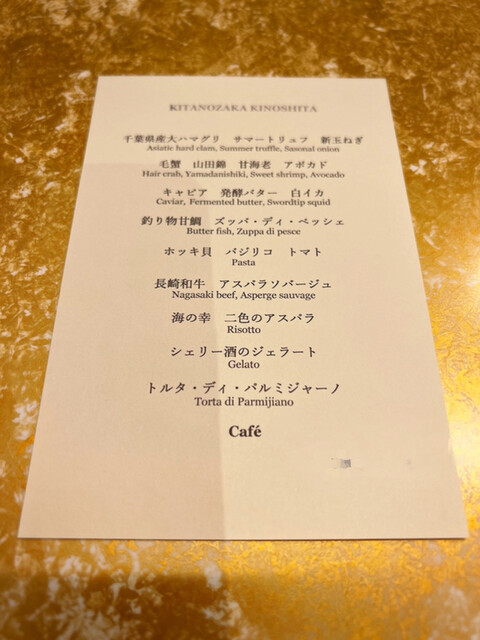 KITANOZAKA KINOSHITA
千葉県産大ハマグリ　サマートリュフ　新玉ねぎ
Asiatic hard clam, Summer truffle, Sasonal onion
毛蟹　山田錦　甘海老　アボカド
Hair crab, Yamadanishiki, Sweet shrimp, Avocado
キャビア　発酵バター　白イカ
Caviar, Fermented butter, Swordtip squid
釣り物甘鯛　ズッパ・ディ・ペッシェ
Butter fish, Zuppa di pesce
ホッキ貝　バジリコ　トマト
Pasta
長崎和牛　アスパラソバージュ
Nagasaki beef, Asperge sauvage
海の幸　二色のアスパラ
Risotto
シェリー酒のジェラート
Gelato
トルタ・ディ・パルミジャーノ
Torta di Parmijiano
Café